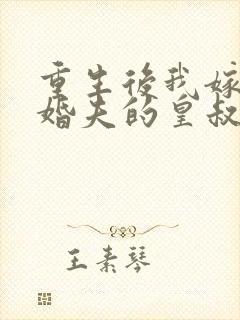 重生後我嫁
婚夫的皇叔
王素琴